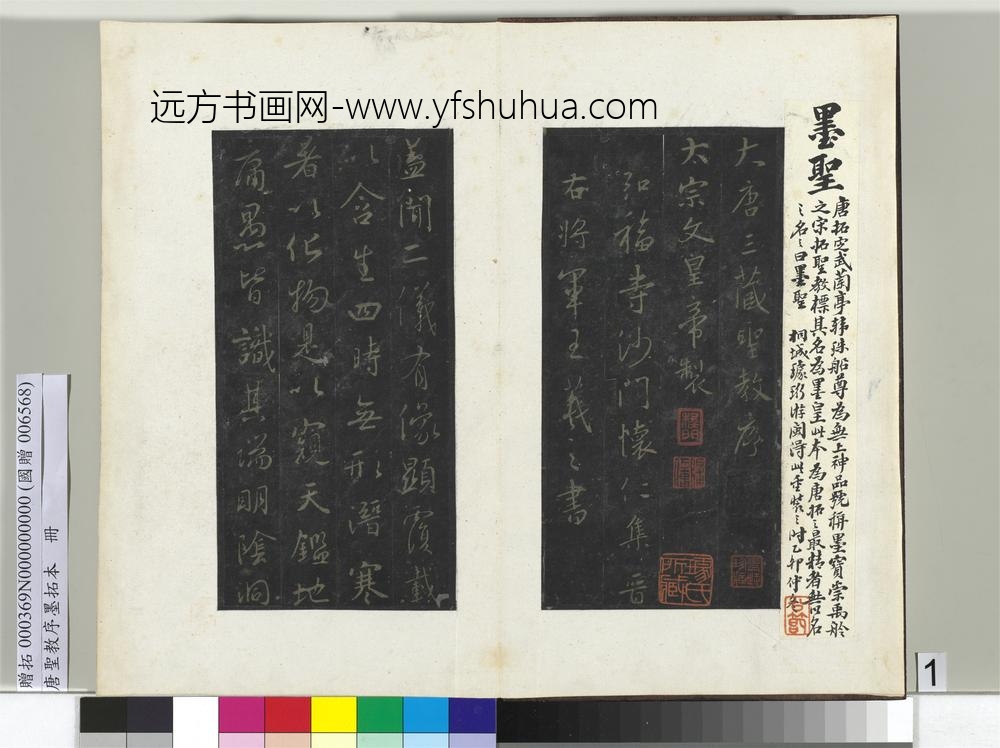 远方书画网-www.yfshuhua.com
墨聖
唐拓定武蘭亭韩珠船尊為無上神品號稱墨寶崇禹舲
之宋拓聖教標其名為墨皇此本為唐拓之最精者無以名
之名之曰墨聖 桐城 游閩得此重裝之时乙卯仲
大唐三藏聖教序
太宗文皇帝製
弘福寺沙門懷仁集晋
右將軍王羲之書
蓋聞二儀有像顯覆載
以含生四時無形潛寒
暑以化物是以窺天鑑地
庸愚皆識其端明陰洞
贈拓 000369N000000000 (國贈 006568)
唐聖教序墨拓本 冊
1